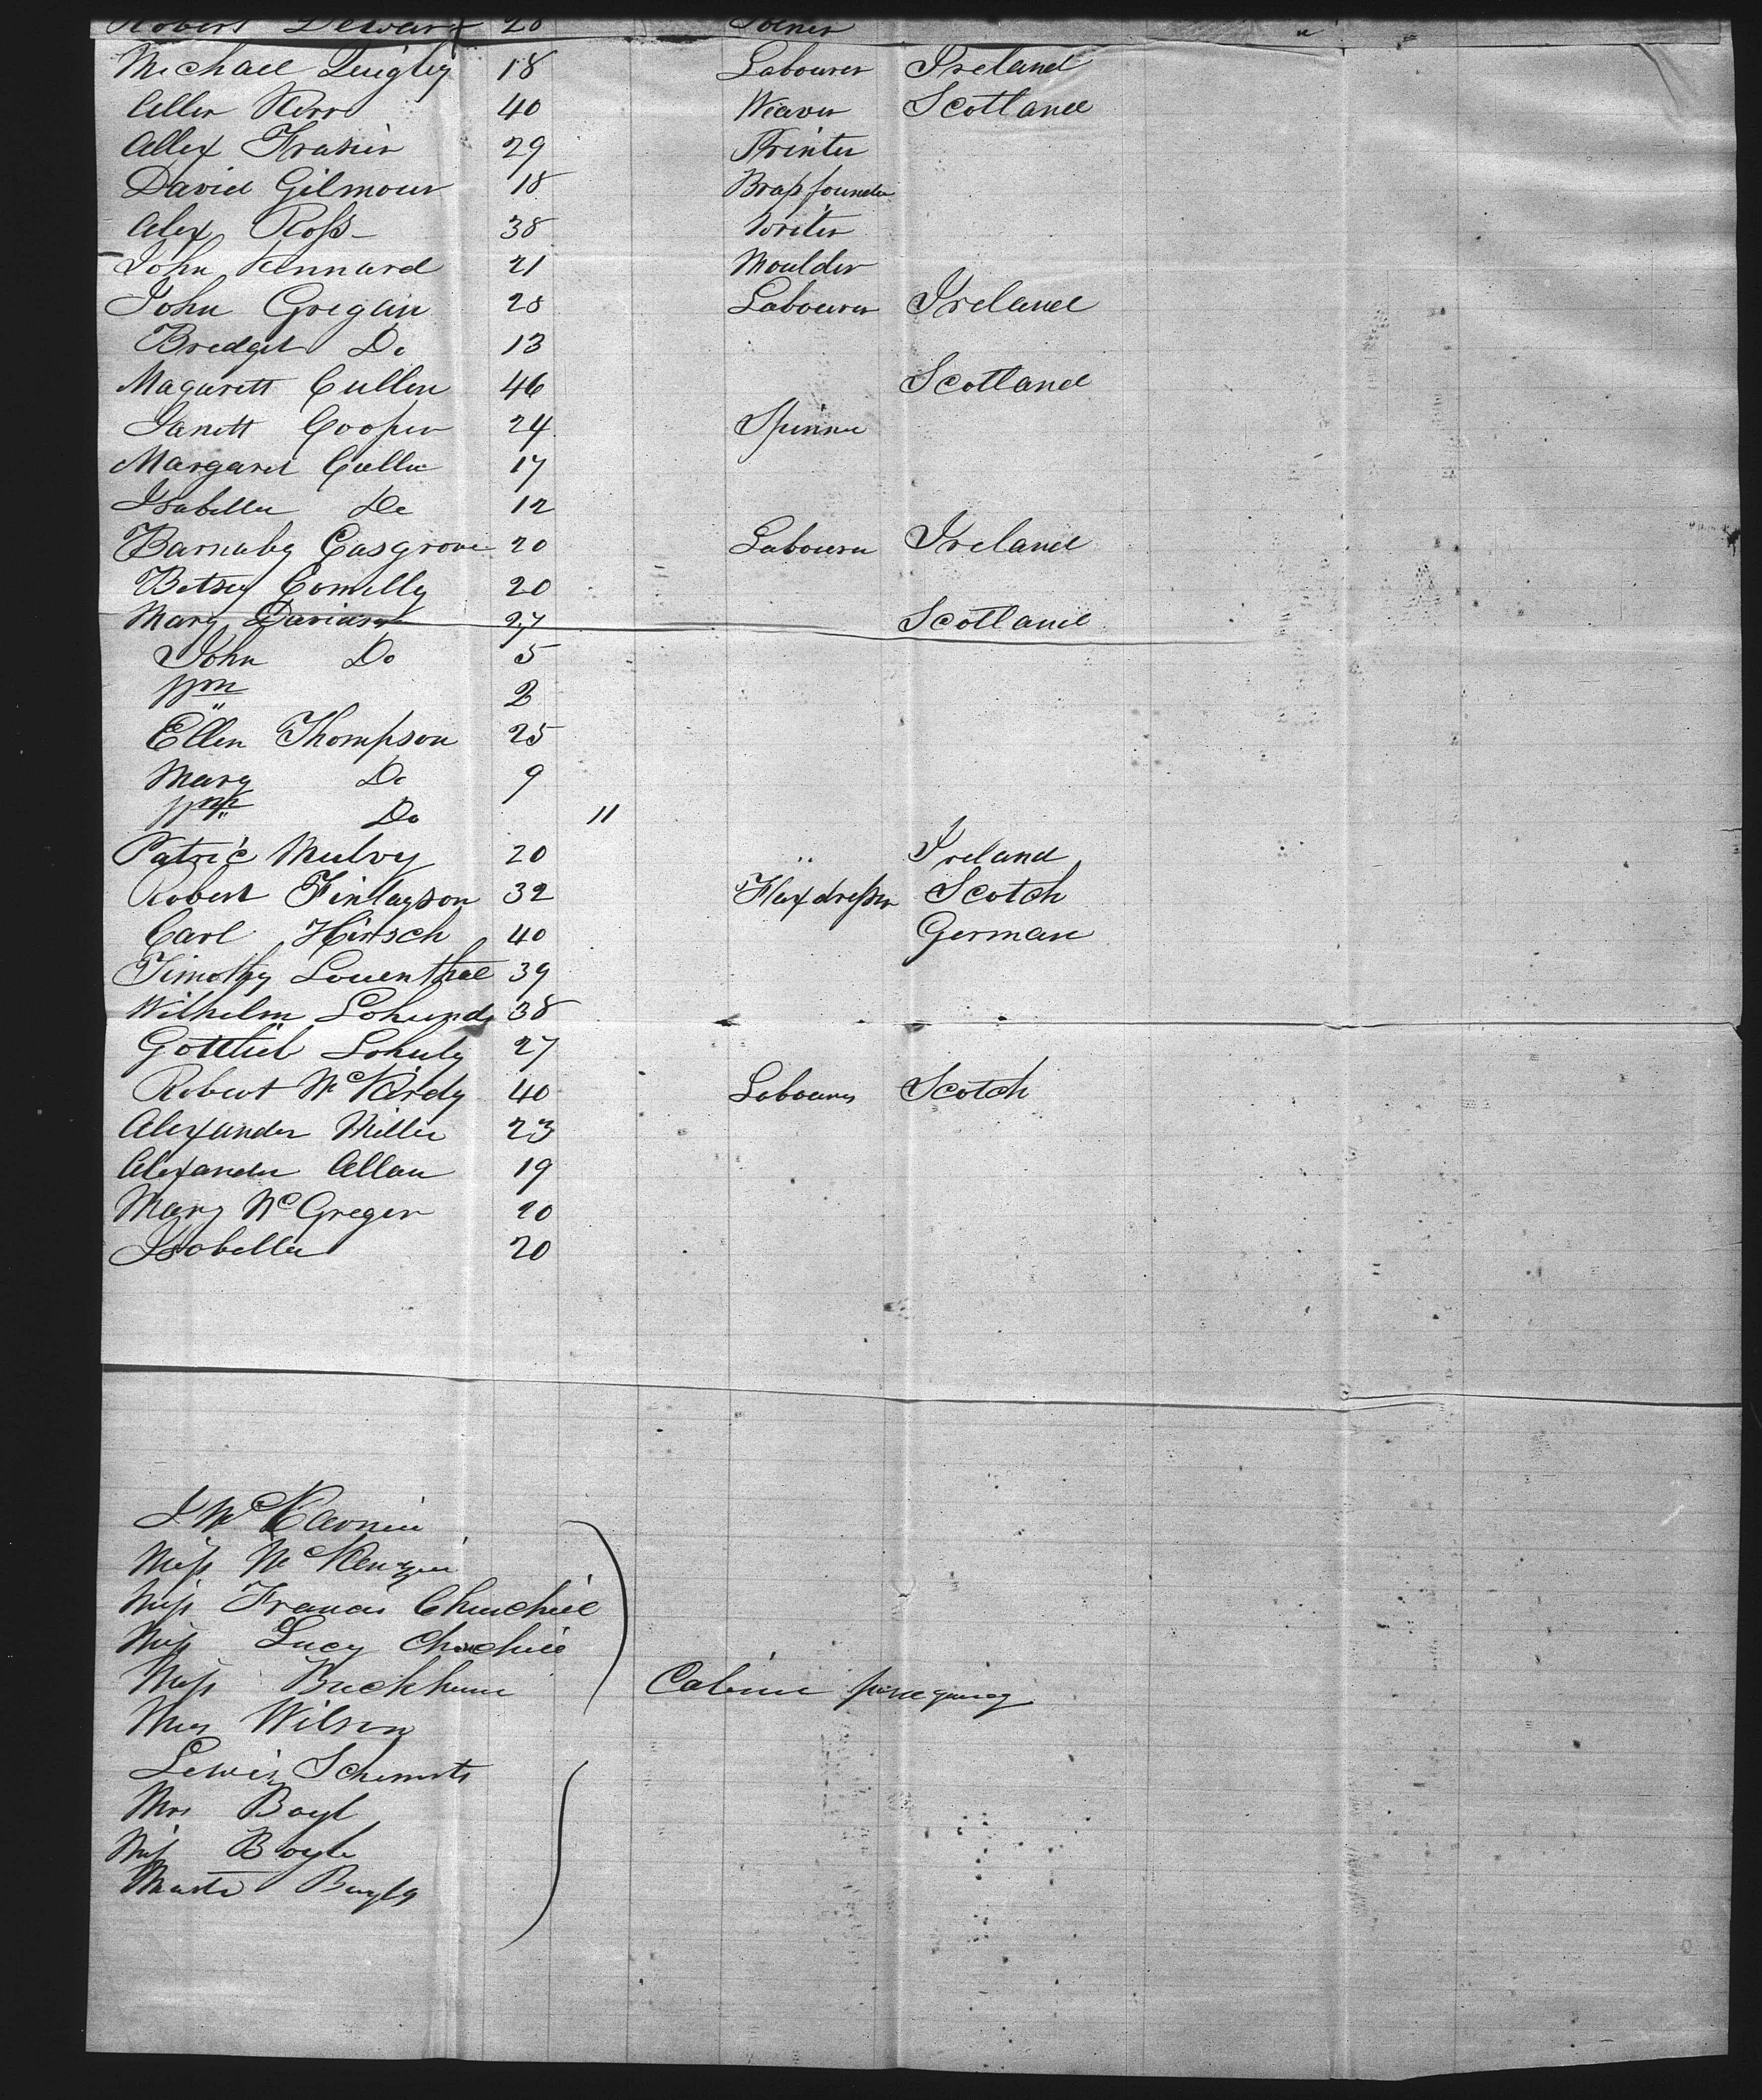 Robert Dewar 28 Joiner
Michael Quigley 18 Labourer Ireland
Allen Kerr 40 Weaver Scotland
Allex Frasier 29 Printer
David Gilmour 18 Brassfounder
Alex Ross 38 Writer
John Kennard 21 Moulder
John Gregan 28 Labourer Ireland
Bredget Do 13
Magarett Cullen 46 Scotland
Janett Cooper 24 Spinner
Margaret Cullen 17
Isabella Do 12
Barnaby Casgrove 20 Labourer Ireland
Betsey Connelly 20
Mary Davidson 27 Scotland
John Do 5
Wm " 2
Ellen Thompson 25
Mary Do 9
Wm Do 11
Patric Mulvy 20 " Ireland
Robert Finlayson 32 Flaxdresser Scotch
Carl Hirsch 40 German
Timothy Louenthal 39
Wilhelm 38
Gottlieb 27
Robert McKirdy 40 Labourer Scotch
Alexander Miller 23
Alexander Allan 19
Mary McGreger 20
Isabella 20
J
Miss McKenzie
Miss Francis Churchill
Miss Lucy Churchill
Miss
Wilson
Lewis
Mrs Boyl
Miss Boyle
Master Boyle
Cabin